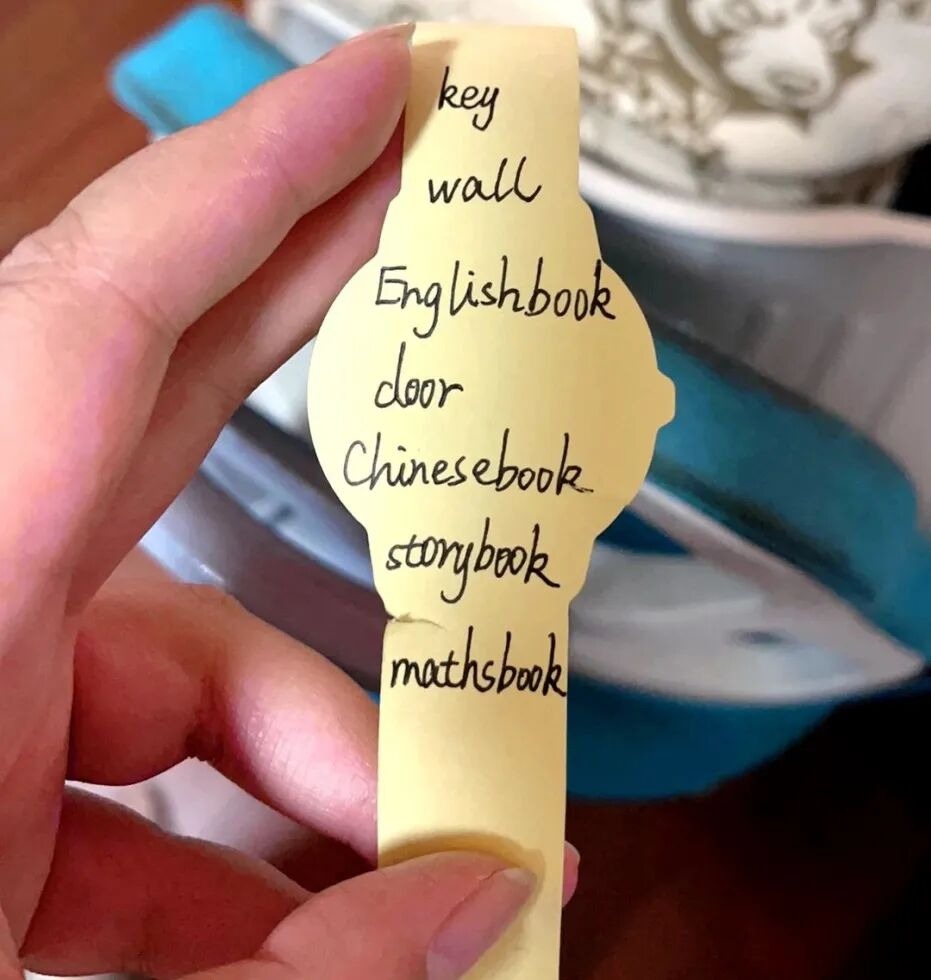 key
wall
Englishbook
door
Chinesebook
storybook
mathsbook